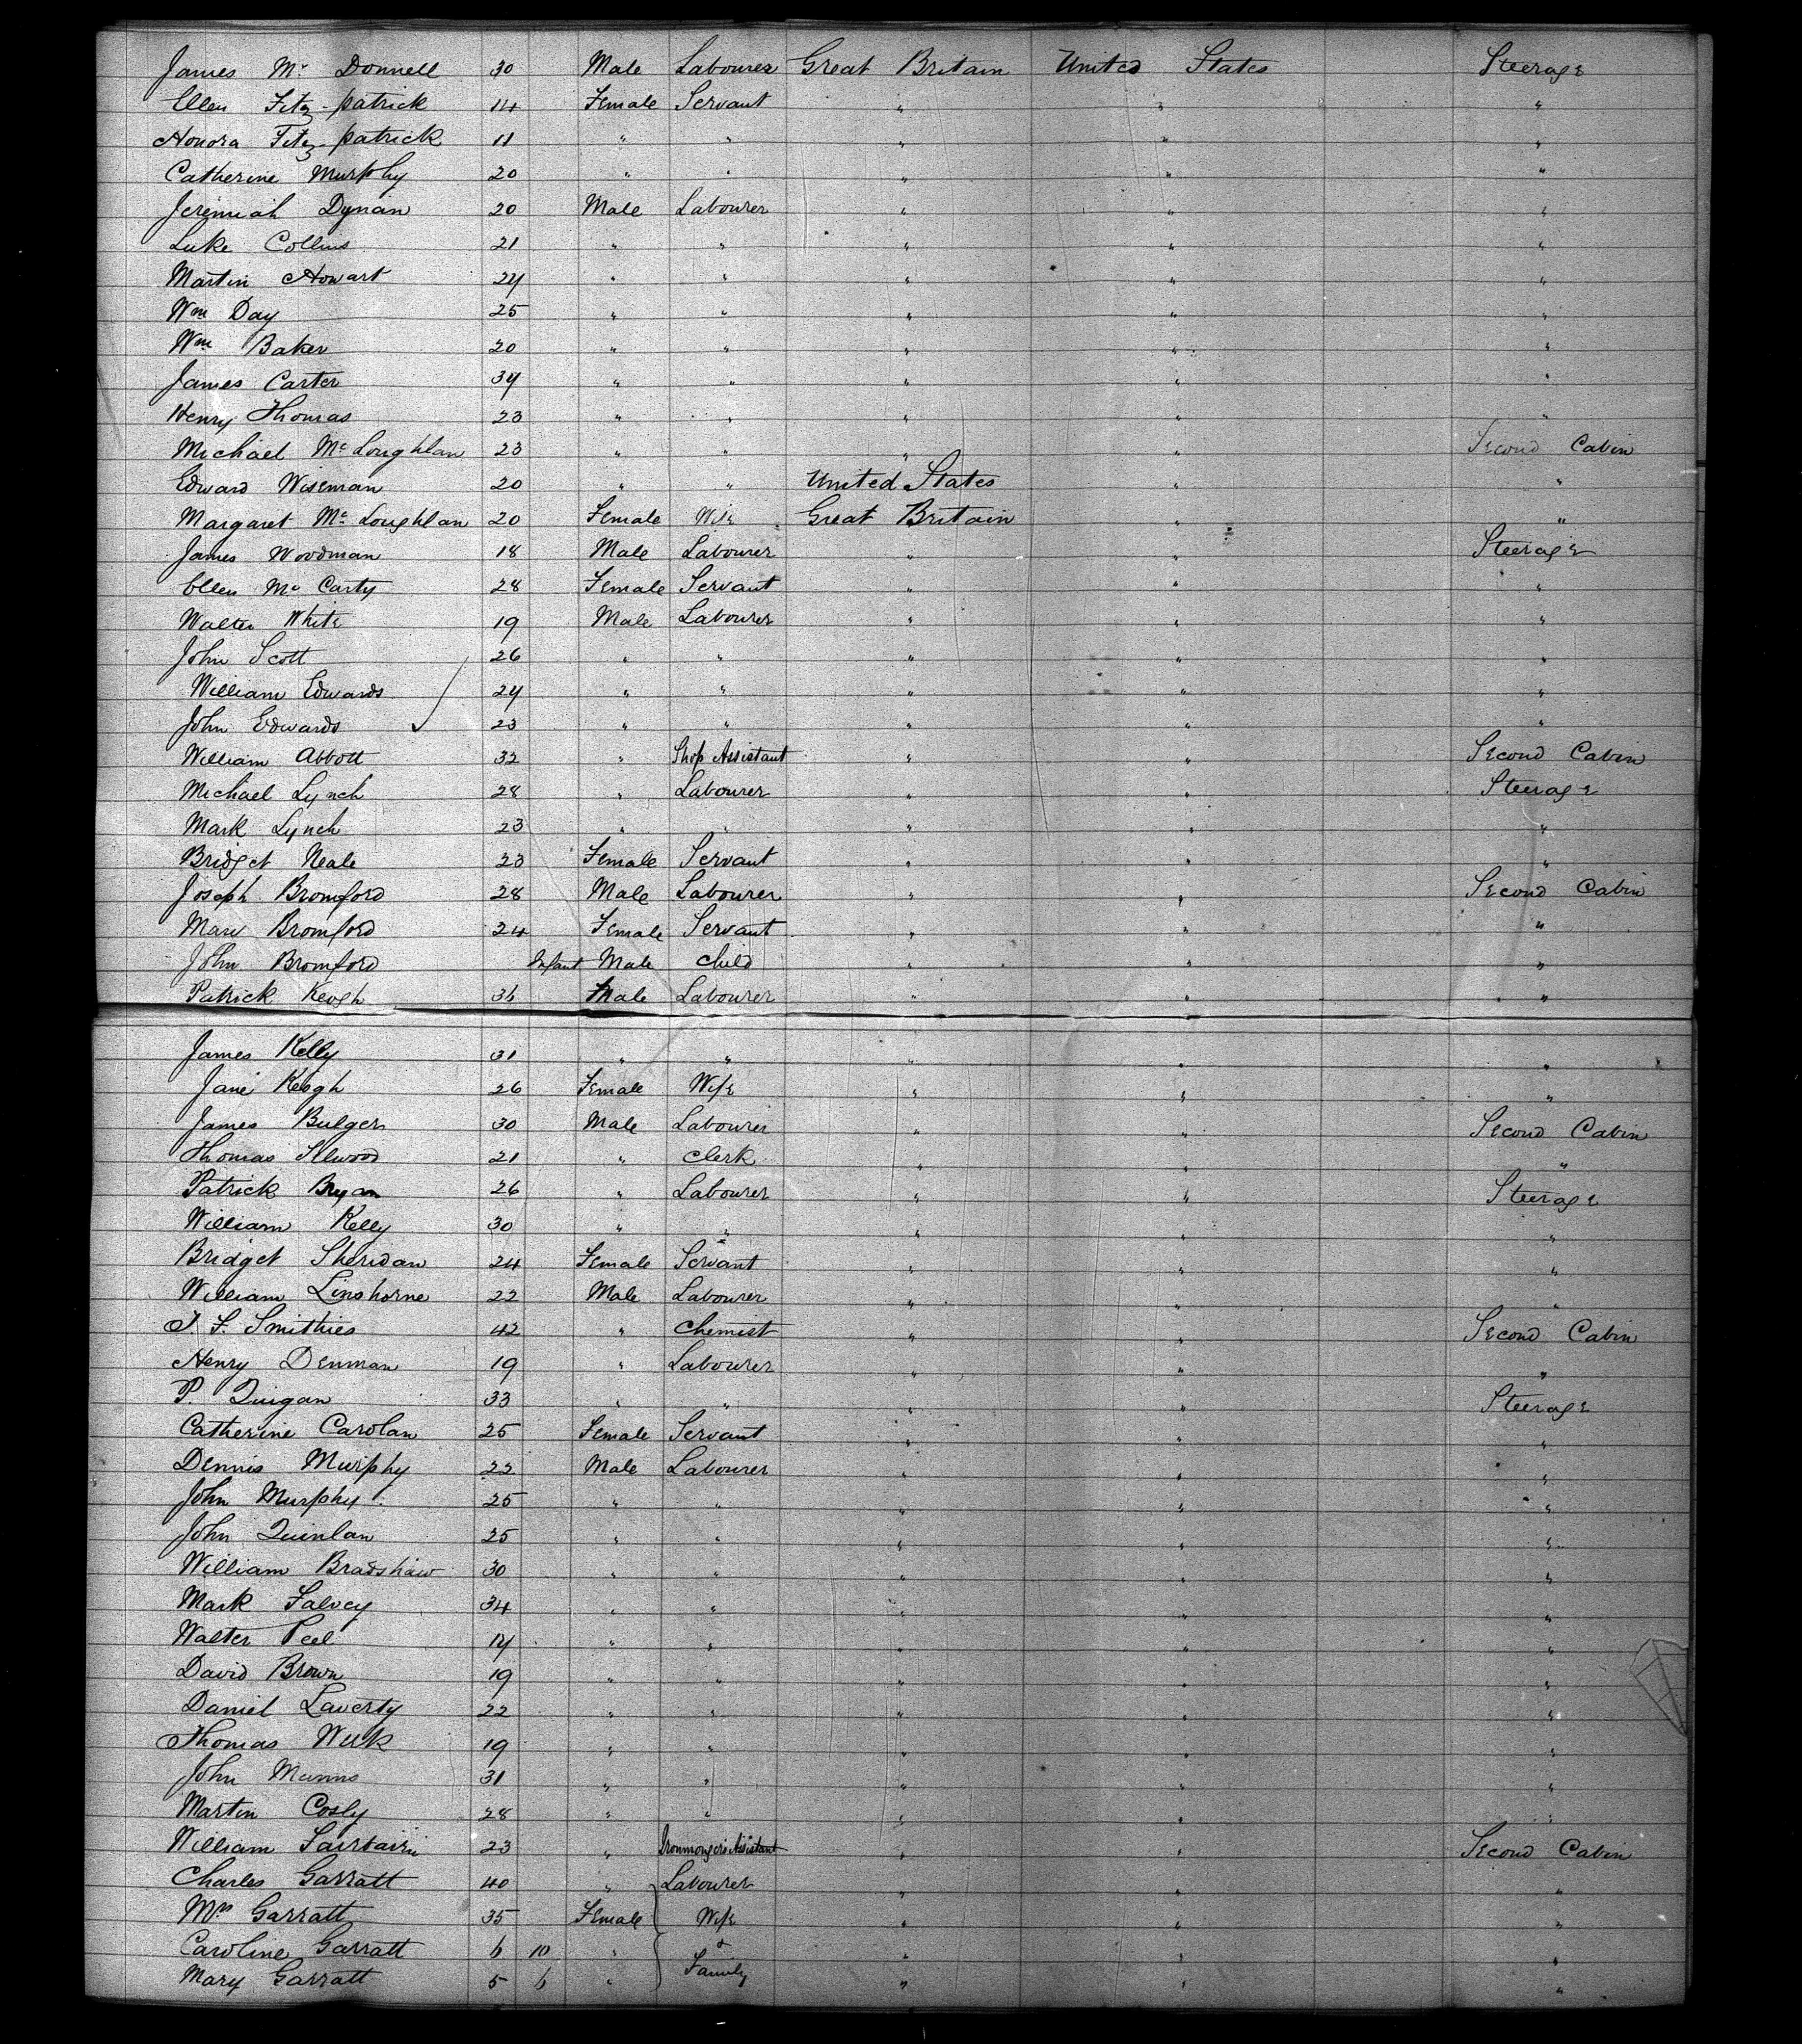 James Mc Donnell 30 Male Labourer Great Britain United States Steerage
Ellen Fitz-patrick 14 Female Servant " " "
Honora Fitz-patrick 11 " " " " "
Catherine Murphy 20 " " " " "
Jeremiah Dynan 20 Male Labourer " " "
Luke Collins 21 " " " " "
Martin Howart 24 " " " " "
Wm Day 25 " " " " "
Wm Baker 20 " " " " "
James Carter 34 " " " " "
Henry Thomas 23 " " " " "
Michael Mc Loughlan 23 " " " " Second Cabin
Edward Wiseman 20 " " United States " "
Margaret Mc Loughlan 20 Female Wife Great Britain " "
James Woodman 18 Male Labourer " " Steerage
Ellen Mc Carty 28 Female Servant " " "
Walter White 19 Male Labourer " " "
John Scott 26 " " " " "
William Edwards 24 " " " " "
John Edwards 23 " " " " "
William Abbott 32 " Shop Assistant " " Second Cabin
Michael Lynch 28 " Labourer " " Steerage
Mark Lynch 23 " " " " "
Bridget Neale 23 Female Servant " " "
Joseph Bromford 28 Male Labourer " " Second Cabin
Mary Bromford 24 Female Servant " " "
John Bromford Infant Male Child " " "
Patrick Keogh 36 Male Labourer " " "
James Kelly 31 " " " " "
Jane Keogh 26 Female Wife " " "
James Bulger 30 Male Labourer " " Second Cabin
Thomas 21 " Clerk " " "
Patrick Bryan 26 " Labourer " " Steerage
William Kelly 30 " " " " "
Bridget Sheridan 24 Female Servant " " "
William Linshorne 22 Male Labourer " " "
J. F. Smithies 42 " Chemist " " Second Cabin
Henry Denman 19 " Labourer " " "
P. Quigan 33 " " " " Steerage
Catherine Carolan 25 Female Servant " " "
Dennis Murphy 22 Male Labourer " " "
John Murphy 25 " " " " "
John Quinlan 25 " " " " "
William Bradshaw 30 " " " " "
Mark Falvey 34 " " " " "
Walter Peel 14 " " " " "
David Brown 19 " " " " "
Daniel Laverty 22 " " " " "
Thomas 19 " " " " "
John Manns 31 " " " " "
Martin Cosly 28 " " " " "
William Fairbairn 23 " Ironmongers Assistant " " Second Cabin
Charles Garratt 40 " Labourer " " "
Mrs Garratt 35 Female Wife " " "
Caroline Garratt 6 10 " & " " "
Mary Garratt 5 6 " Family " " "